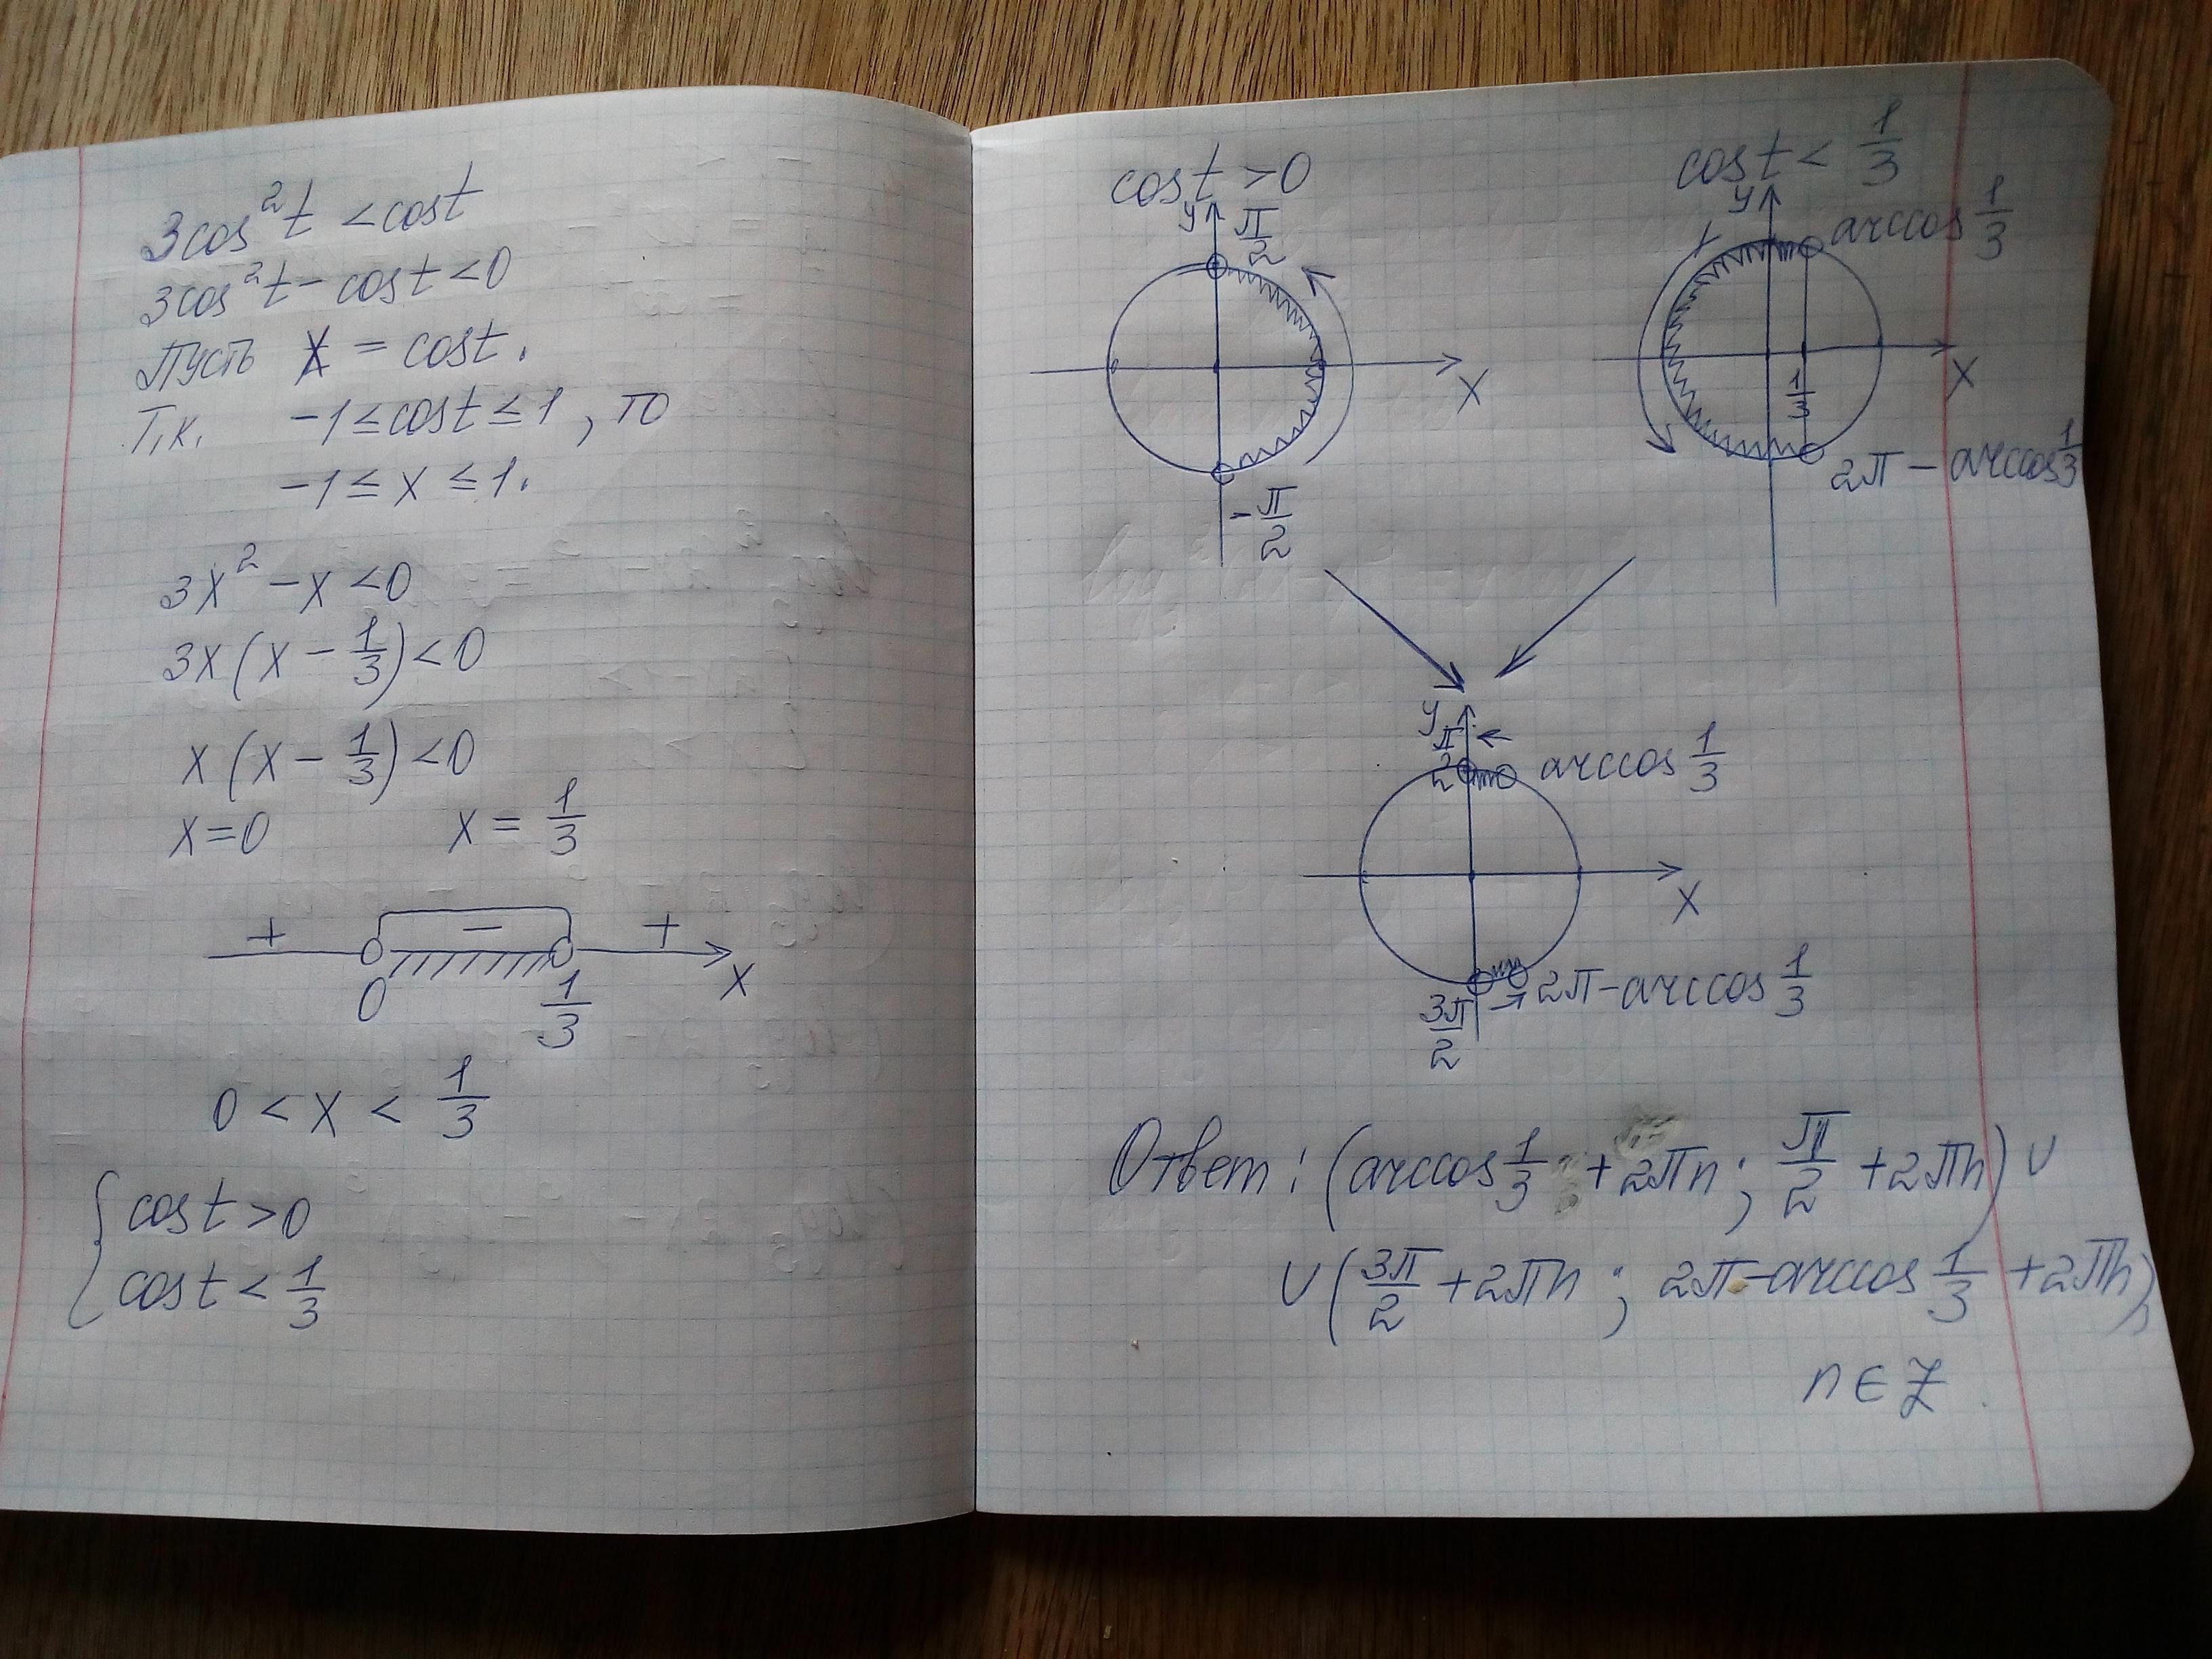 3cos²t < cost
3cos²t - cost < 0
Пусть x = cost.
Т.к. -1 ≤ cost ≤ 1, то
-1 ≤ x ≤ 1.
3x² - x < 0
3x(x - 1/3) < 0
x(x - 1/3) < 0
x = 0 x = 1/3
+ - +
0 1/3 x
0 < x < 1/3
{ cost > 0
cost < 1/3
cost > 0
y π/2
x
-π/2
cost < 1/3
y arccos 1/3
1/3 x
2π - arccos 1/3
y
π/2 arccos 1/3
x
3π/2 2π - arccos 1/3
Ответ: (arccos 1/3 + 2πn; π/2 + 2πn) ∪
∪ (3π/2 + 2πn; 2π - arccos 1/3 + 2πn),
n ∈ Z.